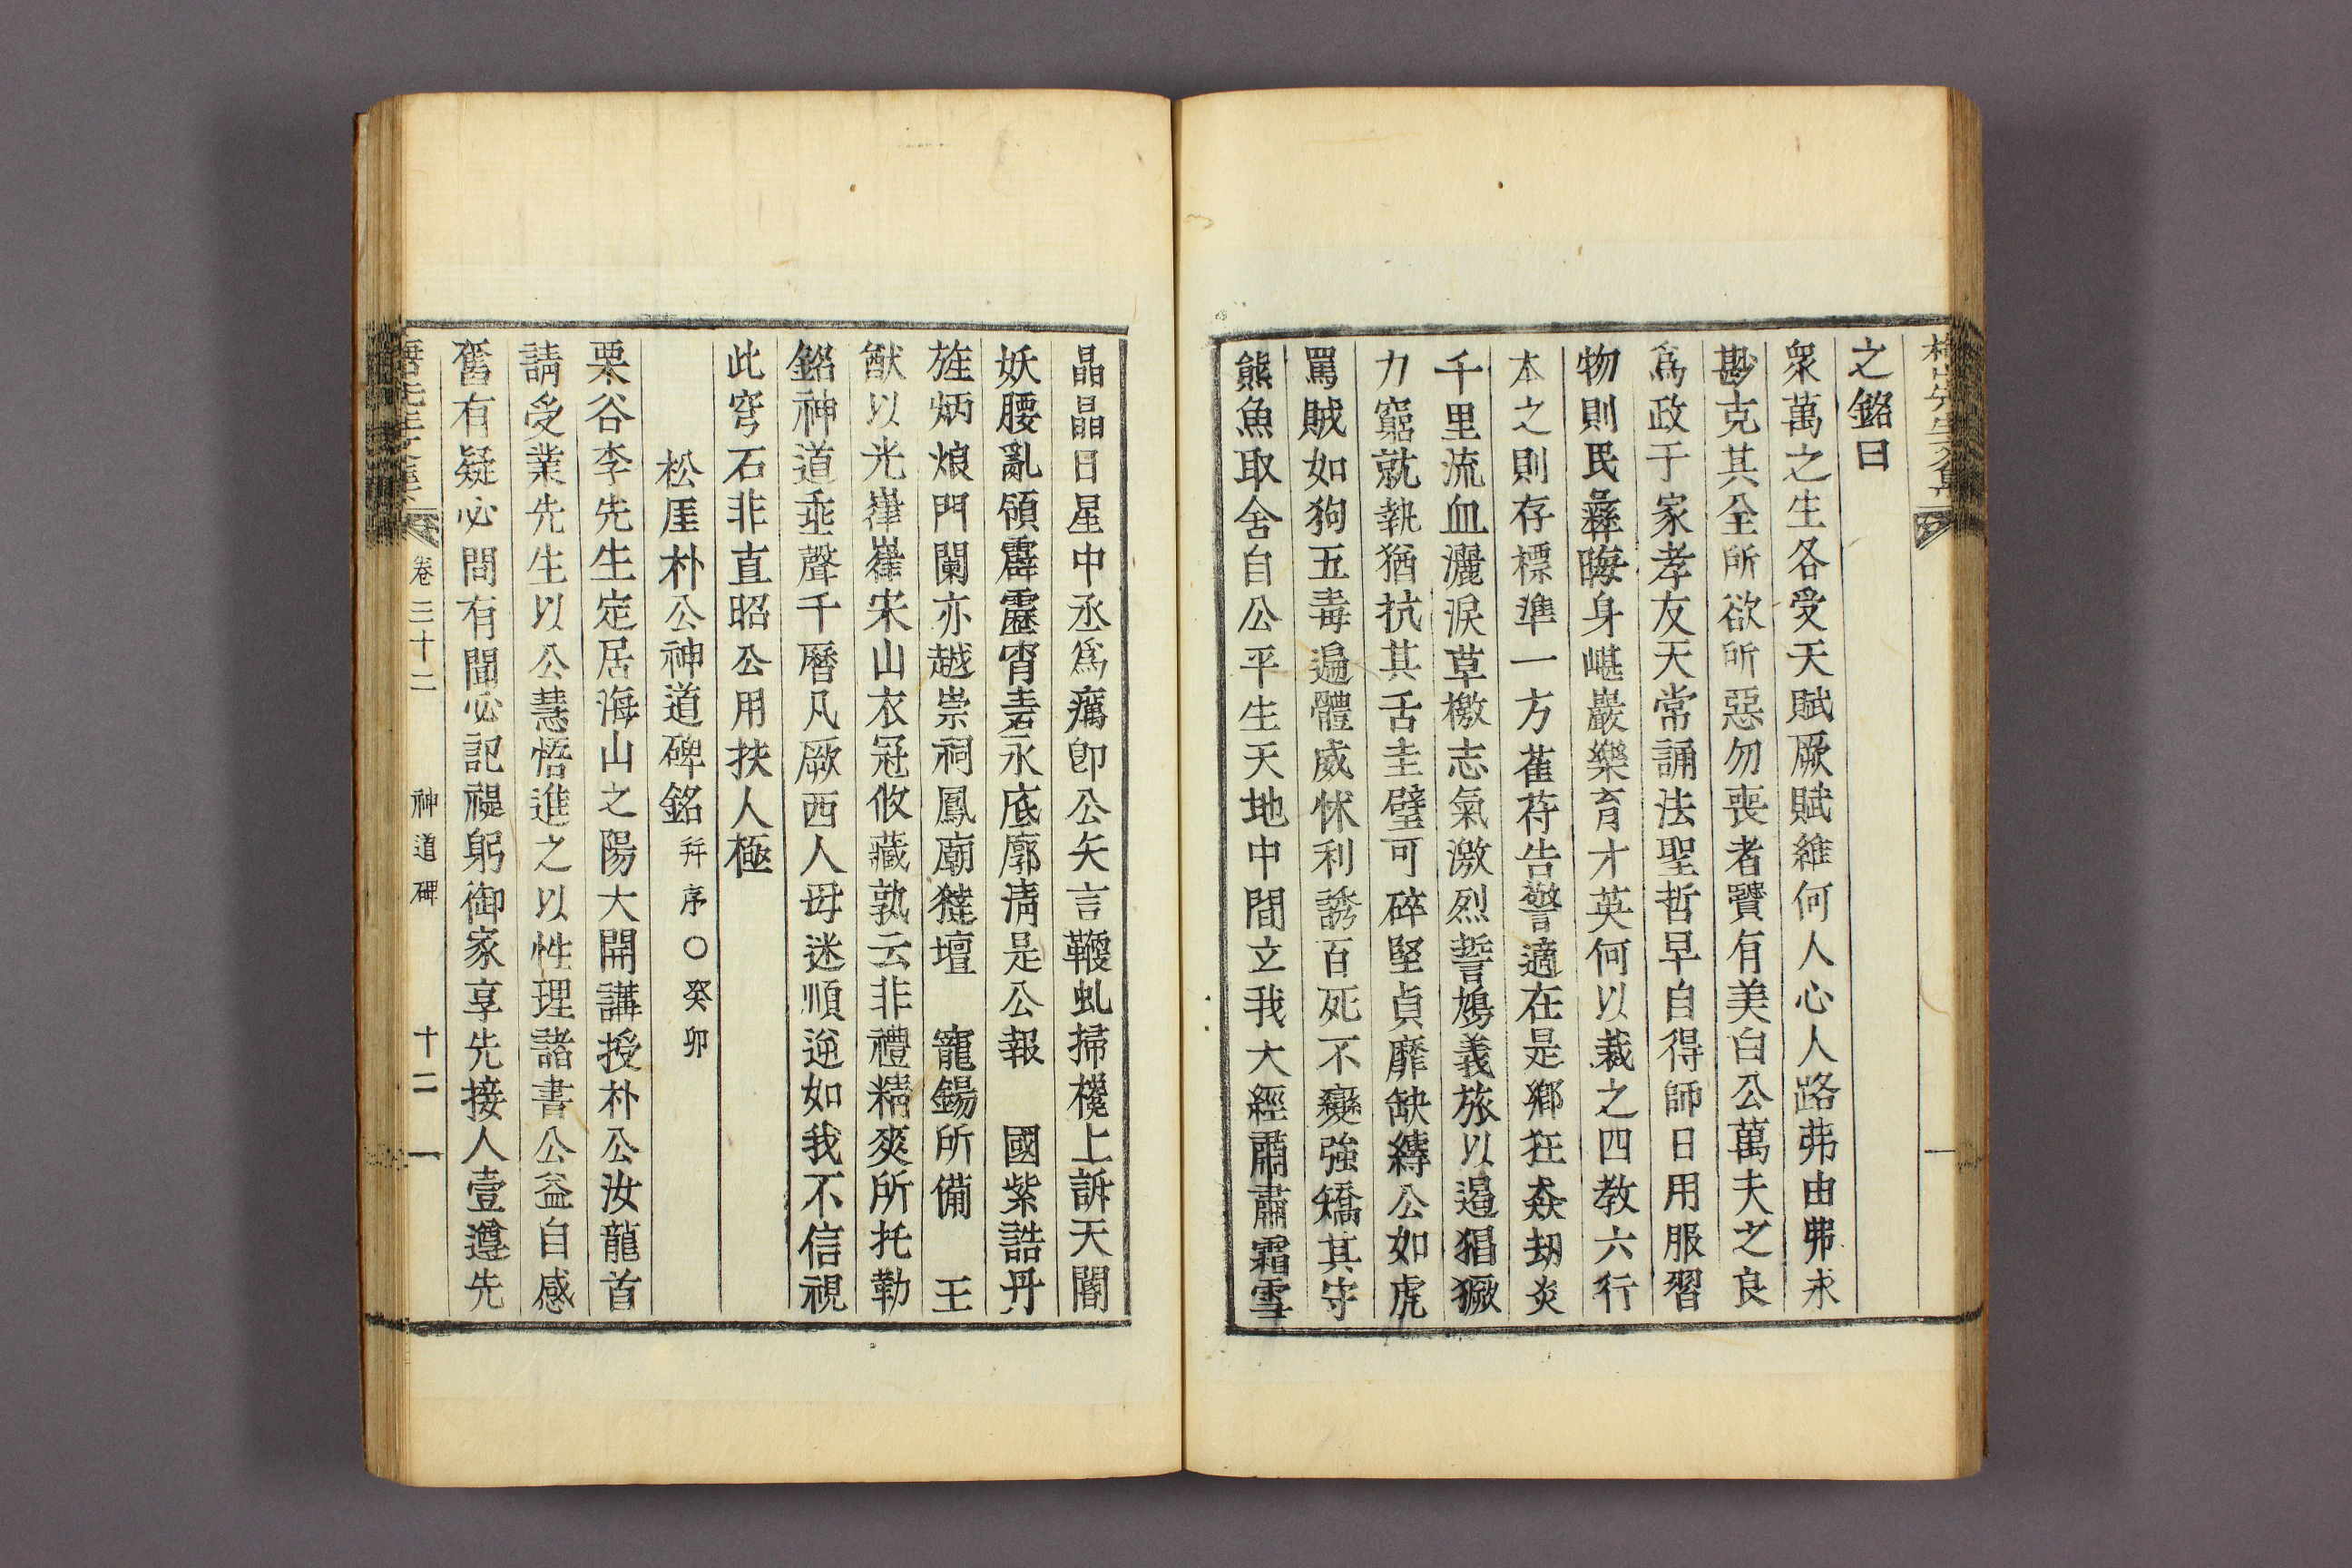 之銘曰
衆萬之生各受天賦厥賦維何人心人路茀由弗求
尠克其全所欲所惡勿喪者賢有美白公萬夫之良
爲政于家孝友天常誦法聖哲早自得師日用服習
物則民彝晦身嵁巖樂育才英何以裁之四敎六行
本之則存標準一方萑苻告警適在是鄕狂猋劫炎
千里流血灑淚草檄志氣激烈誓鳩義旅以遏猖獗
力窮就執猶抗其舌圭璧可碎堅貞靡缺縛公如虎
罵賊如狗五毒遍體威怵利誘百死不變強矯其守
熊魚取舍自公平生天地中間立我大經肅肅霜雪
晶晶日星中丞爲癘卽公矢言鞭虬掃欃上訴天閽
妖腰亂領霹靂宵
永底廓淸是公報 國紫誥丹
旌炳烺門闌亦越崇祠鳳廟
壇 寵錫所備 王
猷以光嵂嵂宋山衣冠攸藏孰云非禮精爽所托勒
銘神道垂聲千曆凡厥西人毋迷順逆如我不信視
此穹石非直昭公用扶人極
松厓朴公神道碑銘 幷序○癸卯
栗谷李先生定居海山之陽大開講授朴公汝龍首
請受業先生以公慧悟進之以性理諸書公益自感
奮有疑必問有聞必記禔躬御家享先接人壹遵先
卷三十二 神道碑 十二